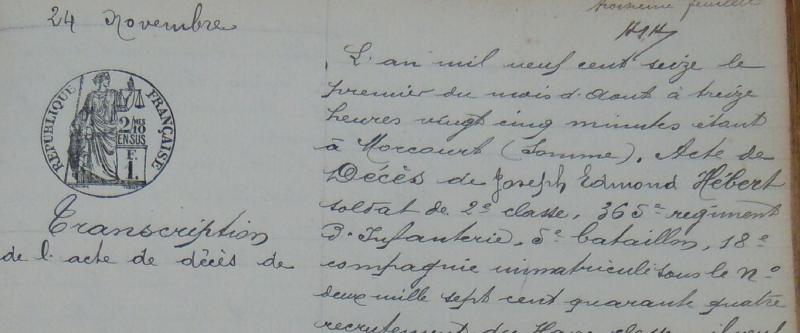 24 Novembre
troisième feuillet
RÉPUBLIQUE FRANÇAISE
2/10 MES
EN SUS
F.
1.
Transcription
de l'acte de décès de
L'an mil neuf cent seize le
premier du mois d'Aout à treize
heures vingt cinq minutes étant
à Morcourt (Somme). Acte de
Décès de Joseph Edmond Hébert
soldat de 2e classe, 365e regiment
d'Infanterie, 5e bataillon, 18e
compagnie immatriculé sous le no
deux mille sept cent quarante quatre
recrutement du Havre classe mil neuf